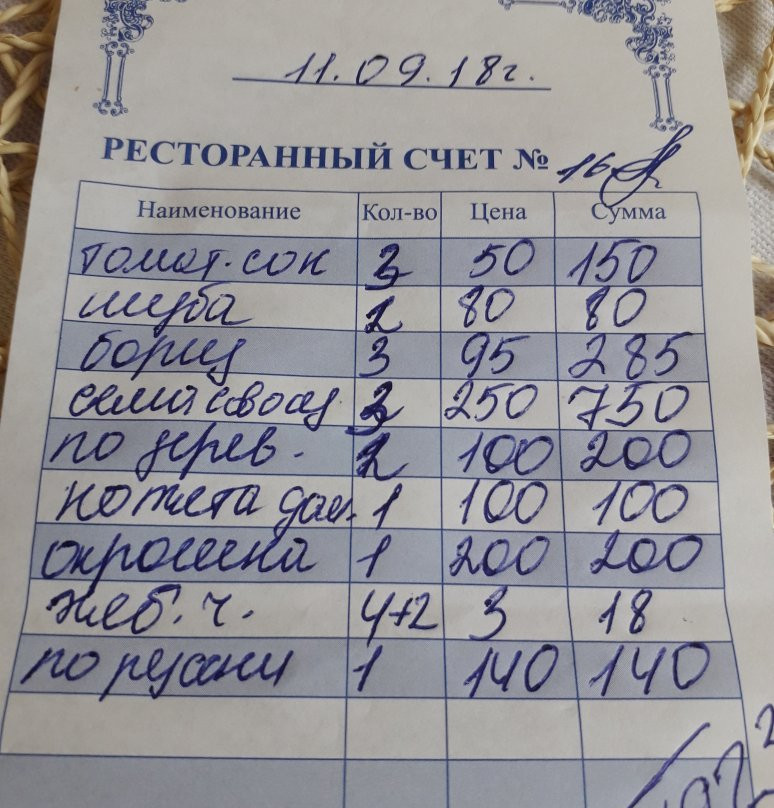 11.09.18г.
РЕСТОРАННЫЙ СЧЕТ № 16
Наименование Кол-во Цена Сумма
томат. сок 3 50 150
шуба 1 80 80
борщ 3 95 285
семга с овощ 3 250 750
по дерев. 2 100 200
котлета дом. 1 100 100
окрошка 1 200 200
хлеб. ч. 4+2 3 18
по русски 1 140 140